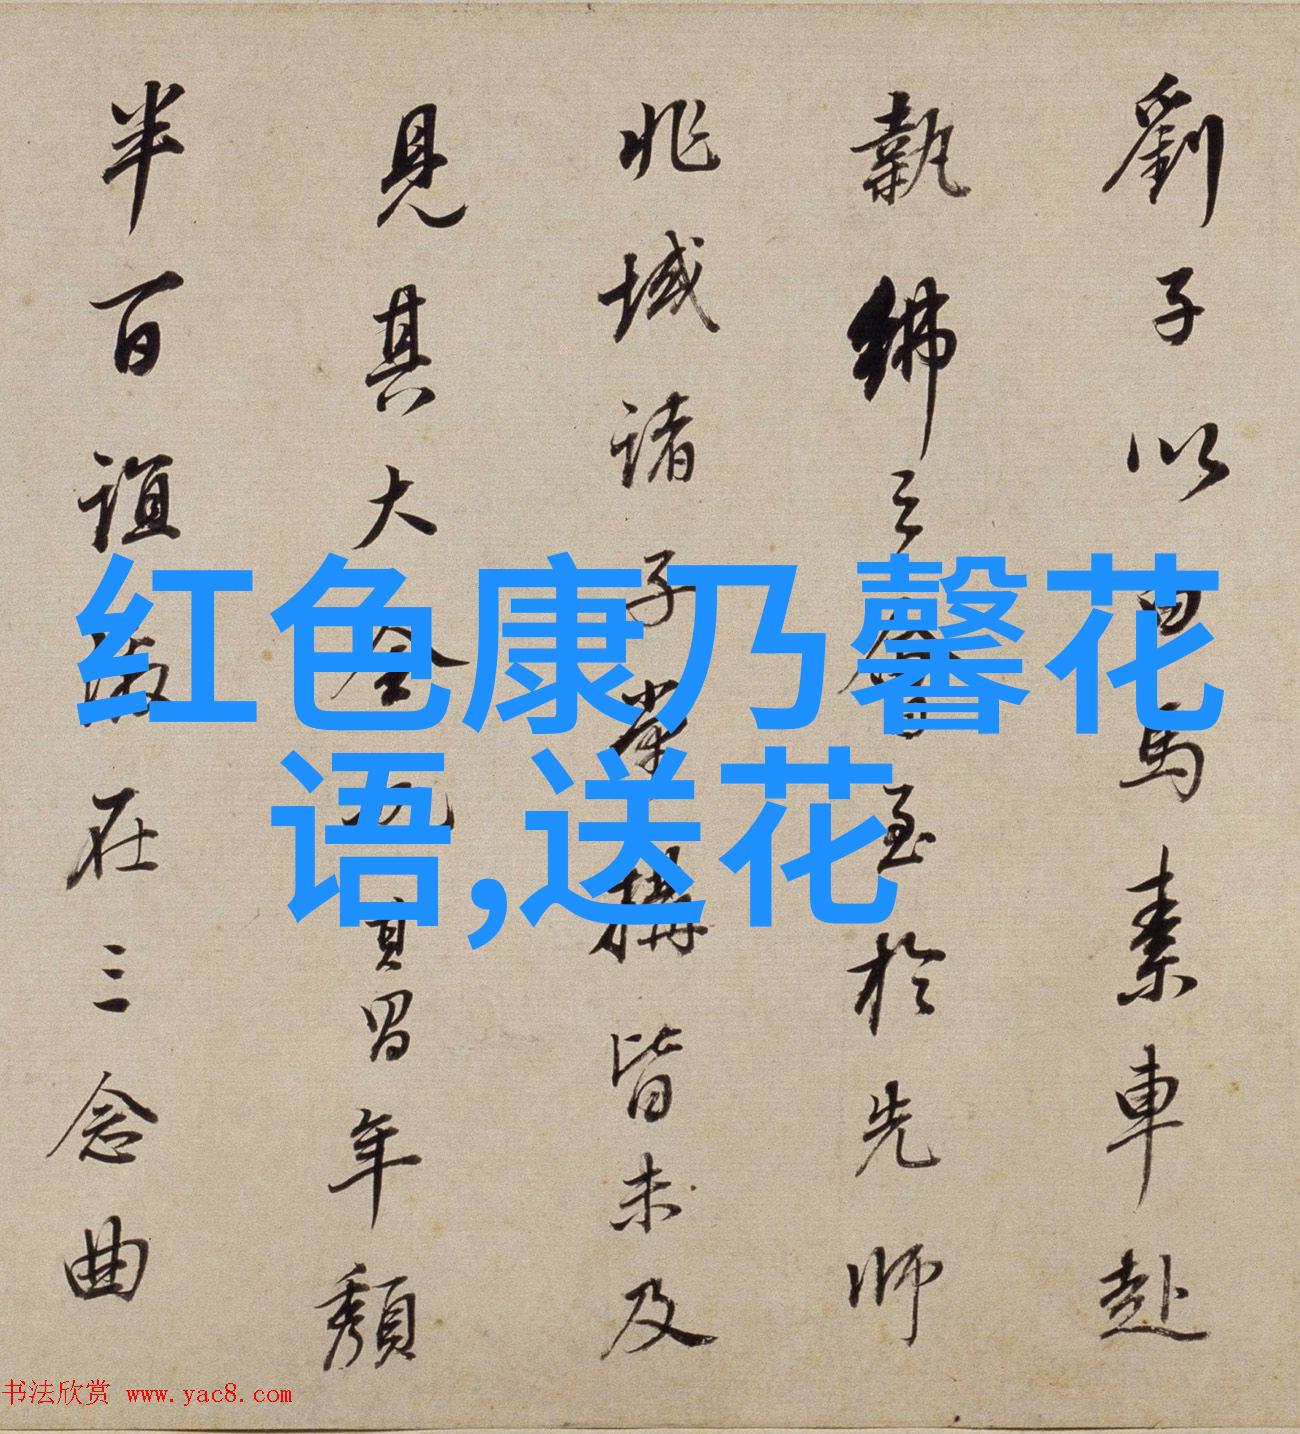 劉子以白馬素車赴
執紼之會至於先師
兆域諸子堂構皆未及
見其大全年頹
半百誼在三念曲
红色康乃馨花
语,送花
书法欣赏 www.yac8.com